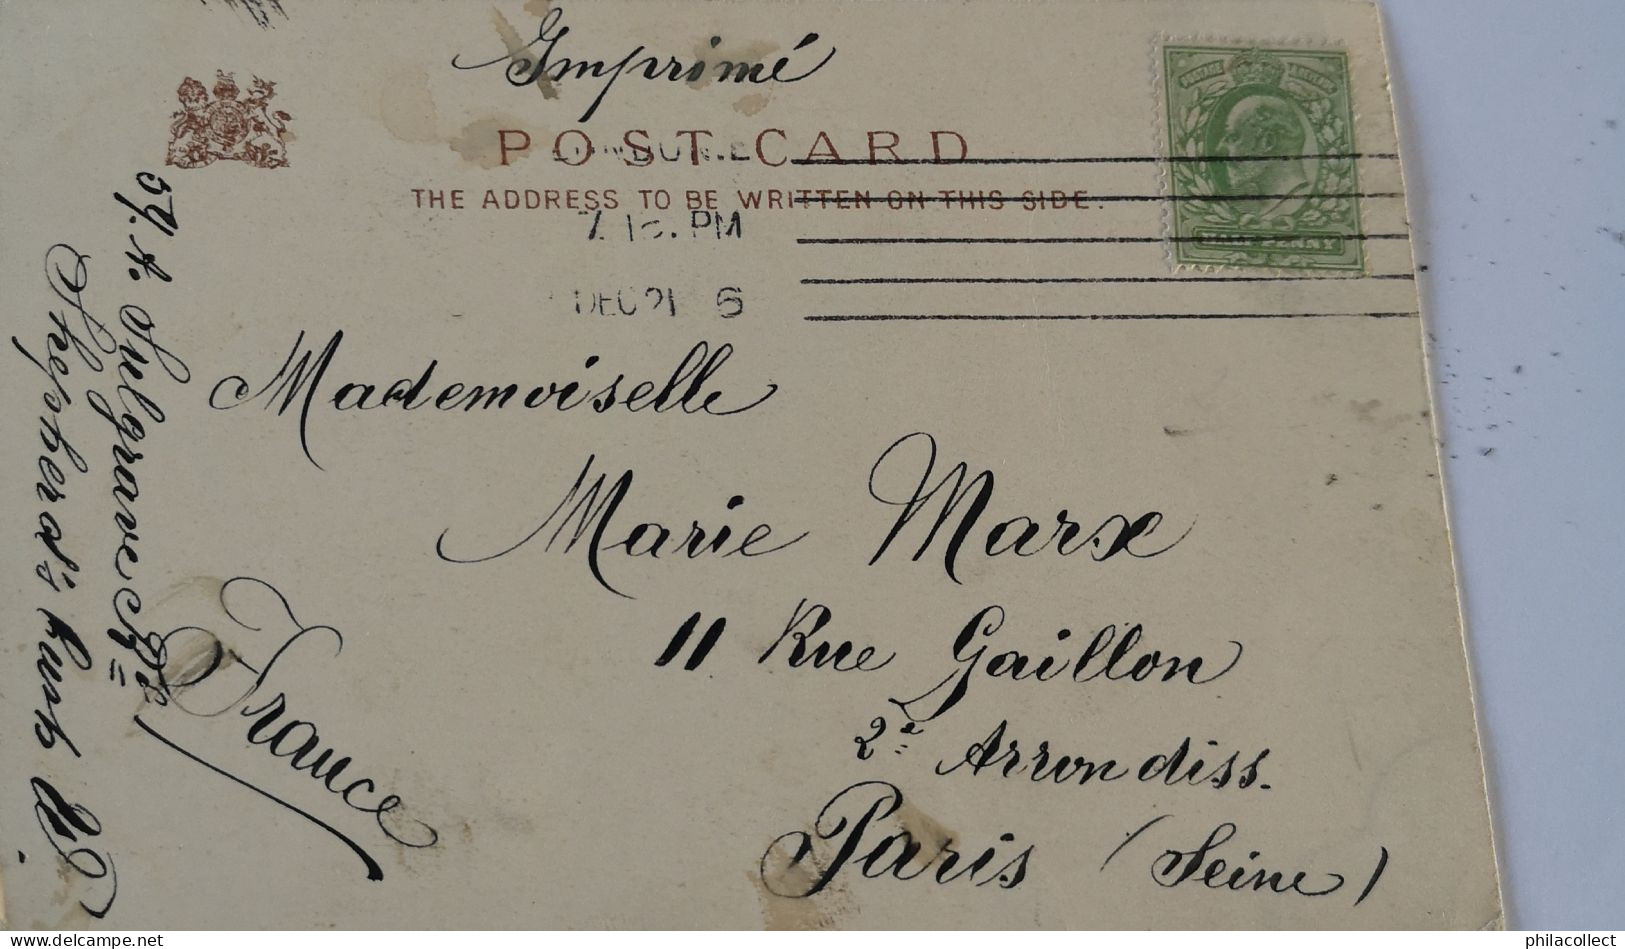 Imprimé
POST CARD
THE ADDRESS TO BE WRITTEN ON THIS SIDE.
7.15. PM
DEC 21 6
HALF PENNY
Mademoiselle
Marie Marx
11 Rue Gaillon
2e Arrondiss.
Paris (Seine)
France
Sulgrave Rd
Shepherd's bush W.
philacollect